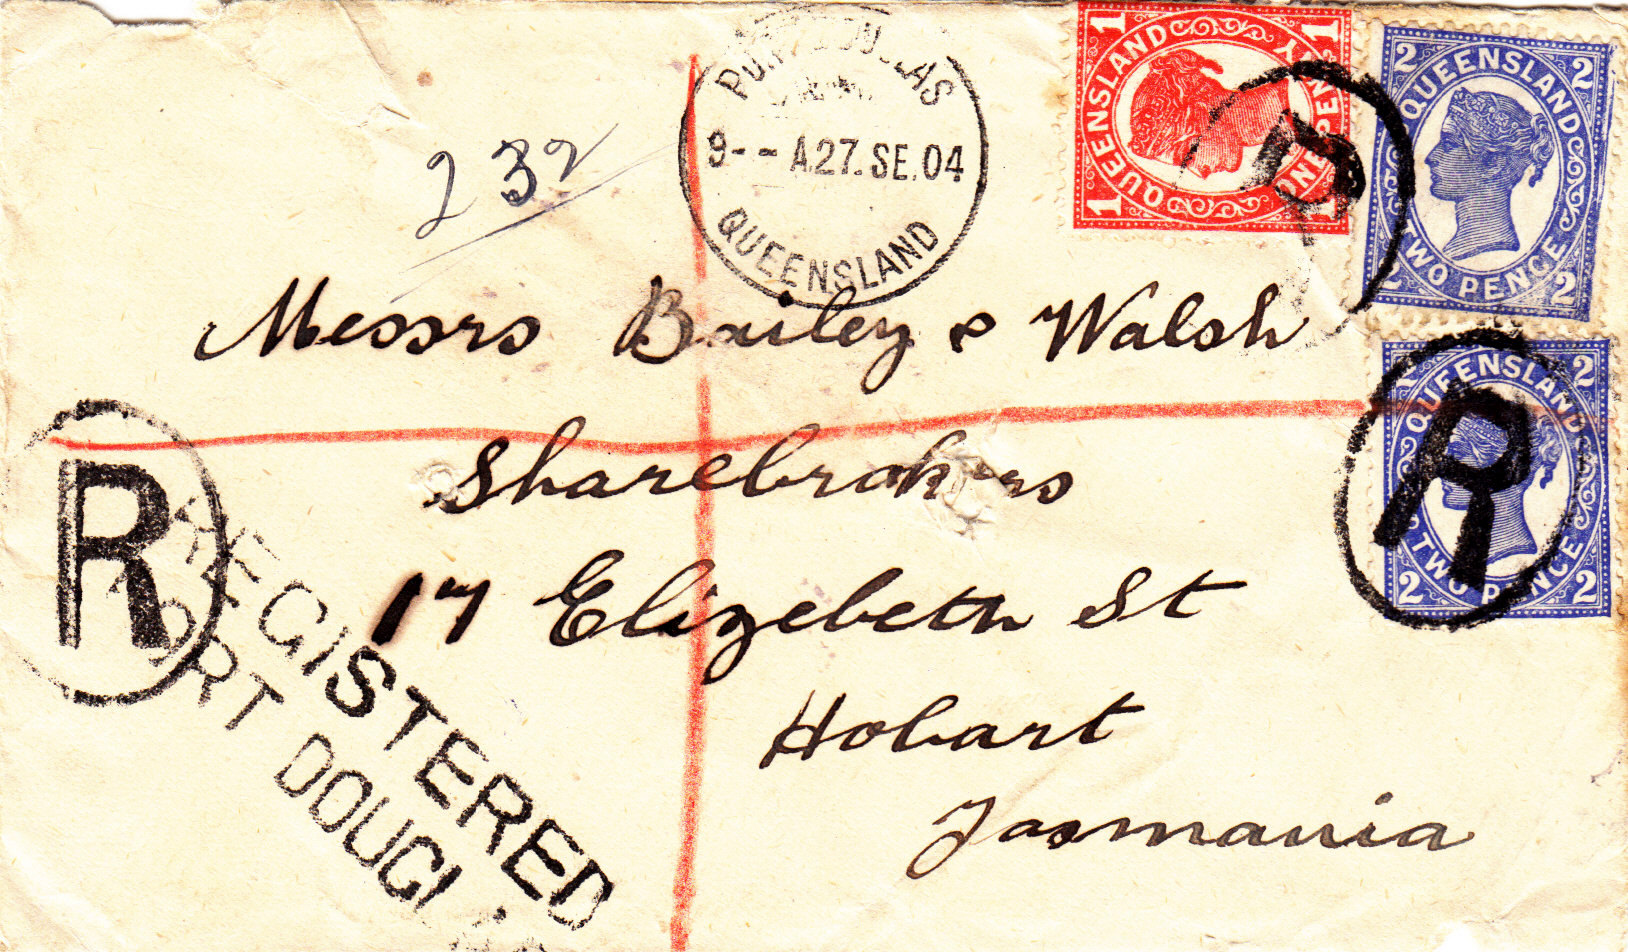 PORT DOUGLAS
9- - A.27.SE.04
QUEENSLAND
232
1 1
QUEENSLAND
ONE PENNY
1 1
2 2
QUEENSLAND
TWO PENCE
2 2
R
Messrs Bailey & Walsh
Sharebrokers
17 Elizebeth St
Hobart
Tasmania
R
REGISTERED
PORT DOUGLAS
2
QUEENSLAND
TWO PENCE
2 2
R